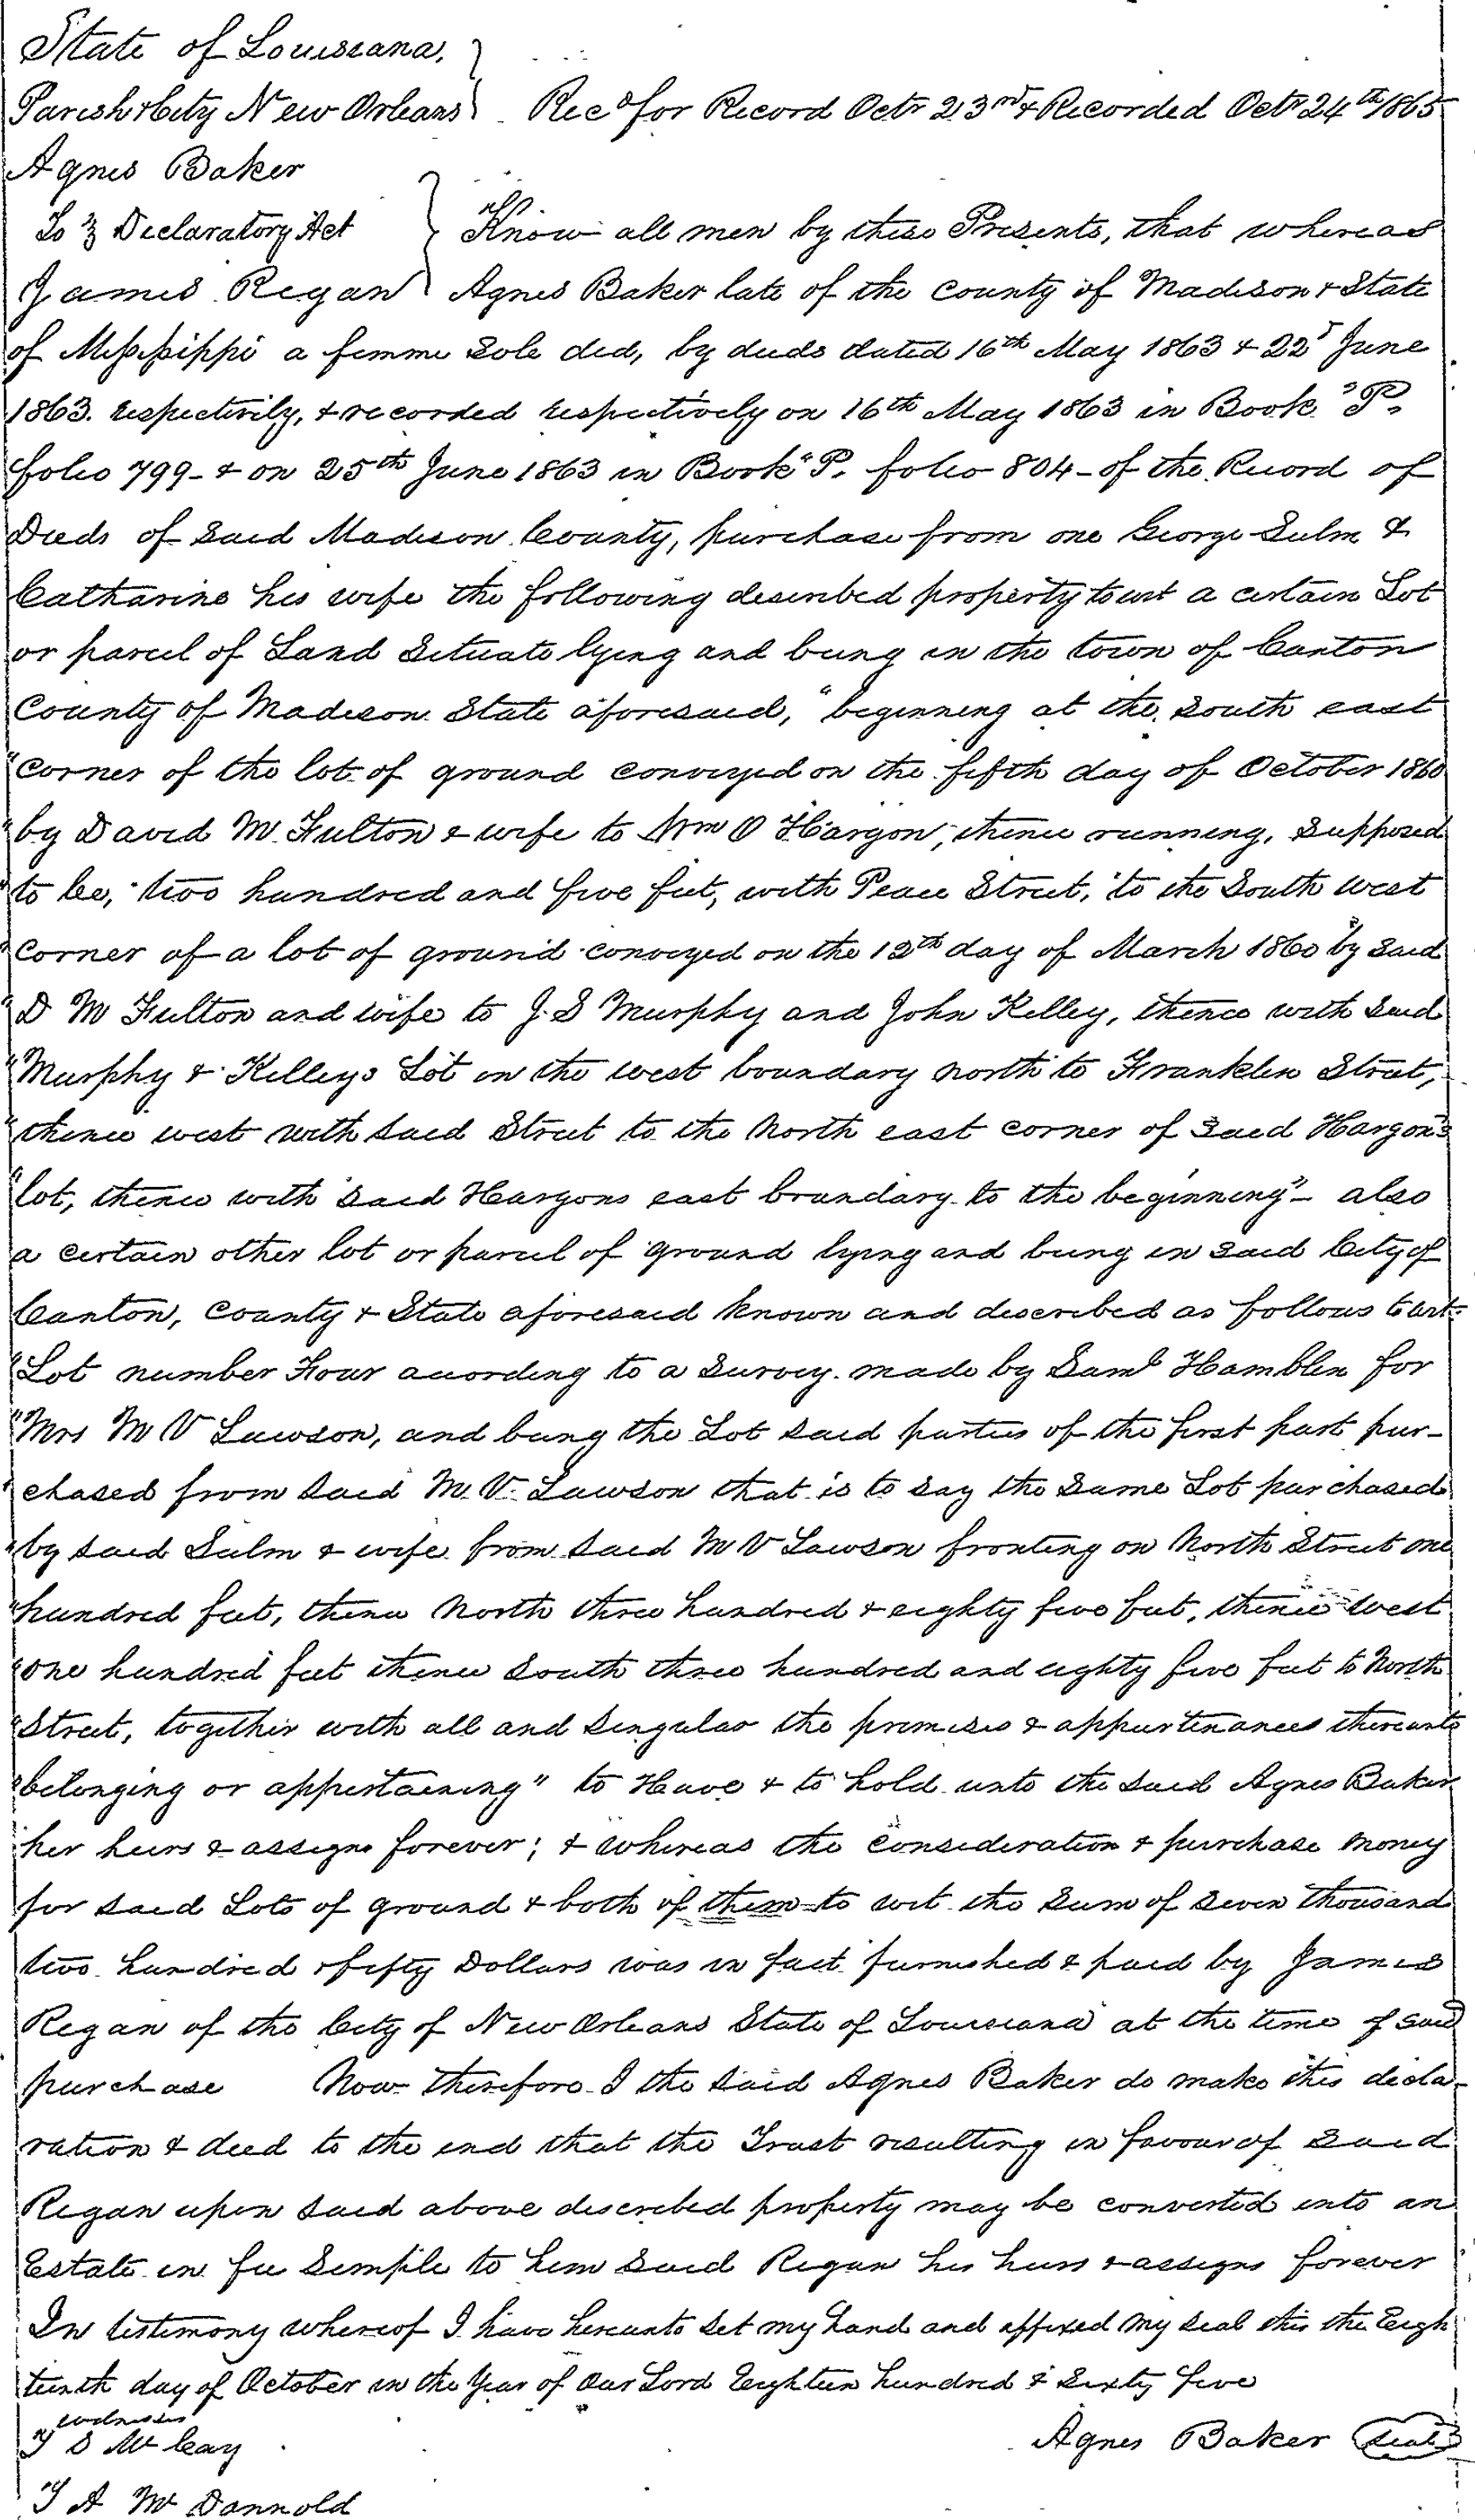 State of Louisiana,
Parish & City New Orleans Recd for Record Octr 23rd & Recorded Octr 24th 1865
Agnes Baker
To } Declaratory Act Know all men by these Presents, that whereas
James Regan Agnes Baker late of the County of Madison & State
of Mississippi a femme sole did, by deeds dated 16th May 1863 & 22d June
1863. respectively, & recorded respectively on 16th May 1863 in Book "P.
folio 799 - & on 25th June 1863 in Book "P. folio 804 - of the Record of
Deeds of said Madison County, purchase from one George Sulm &
Catharine his wife the following described property to wit a certain Lot
or parcel of Land Situate lying and being in the town of Canton
County of Madison State aforesaid, "beginning at the south east
"corner of the lot of ground conveyed on the fifth day of October 1860
"by David M. Fulton & wife to Wm O Hargon, thence running, supposed
"to be, two hundred and five feet, with Peace Street, to the South West
"corner of a lot of ground conveyed on the 12th day of March 1860 by said
"D M Fulton and wife to J. S Murphy and John Kelley, thence with said
"Murphy & Kelleys Lot on the west boundary north to Franklin Street,
"thence west with said Street to the North east corner of said Hargon's
"lot, thence with said Hargons east boundary to the beginning" - also
a certain other lot or parcel of ground lying and being in said City of
Canton, County & State aforesaid known and described as follows to wit:
"Lot number Four according to a Survey made by Saml Hamblin for
"Mrs M V Lawson, and being the Lot said parties of the first part pur-
"chased from said M. V. Lawson that is to say the same Lot purchased
"by said Sulm & wife from said M V Lawson fronting on North Street one
"hundred feet, thence North three hundred & eighty five feet, thence West
"one hundred feet thence South three hundred and eighty five feet to North
"Street, together with all and singular the premises & appurtenances thereunto
"belonging or appertaining" to Have & to hold unto the said Agnes Baker
her heirs & assigns forever; & whereas the consideration & purchase money
for said Lots of ground & both of them to wit the sum of seven thousand
two hundred & fifty Dollars was in fact furnished & paid by James
Regan of the City of New Orleans State of Louisiana at the time of said
purchase Now therefore I the said Agnes Baker do make this decla-
ration & deed to the end that the Trust resulting in favour of said
Regan upon said above described property may be converted into an
Estate in fee simple to him said Regan his heirs & assigns forever
In testimony whereof I have hereunto set my hand and affixed my seal this the Eigh
teenth day of October in the Year of Our Lord Eighteen hundred & Sixty five
witnesses
T S McCay Agnes Baker (seal)
T A McDannold